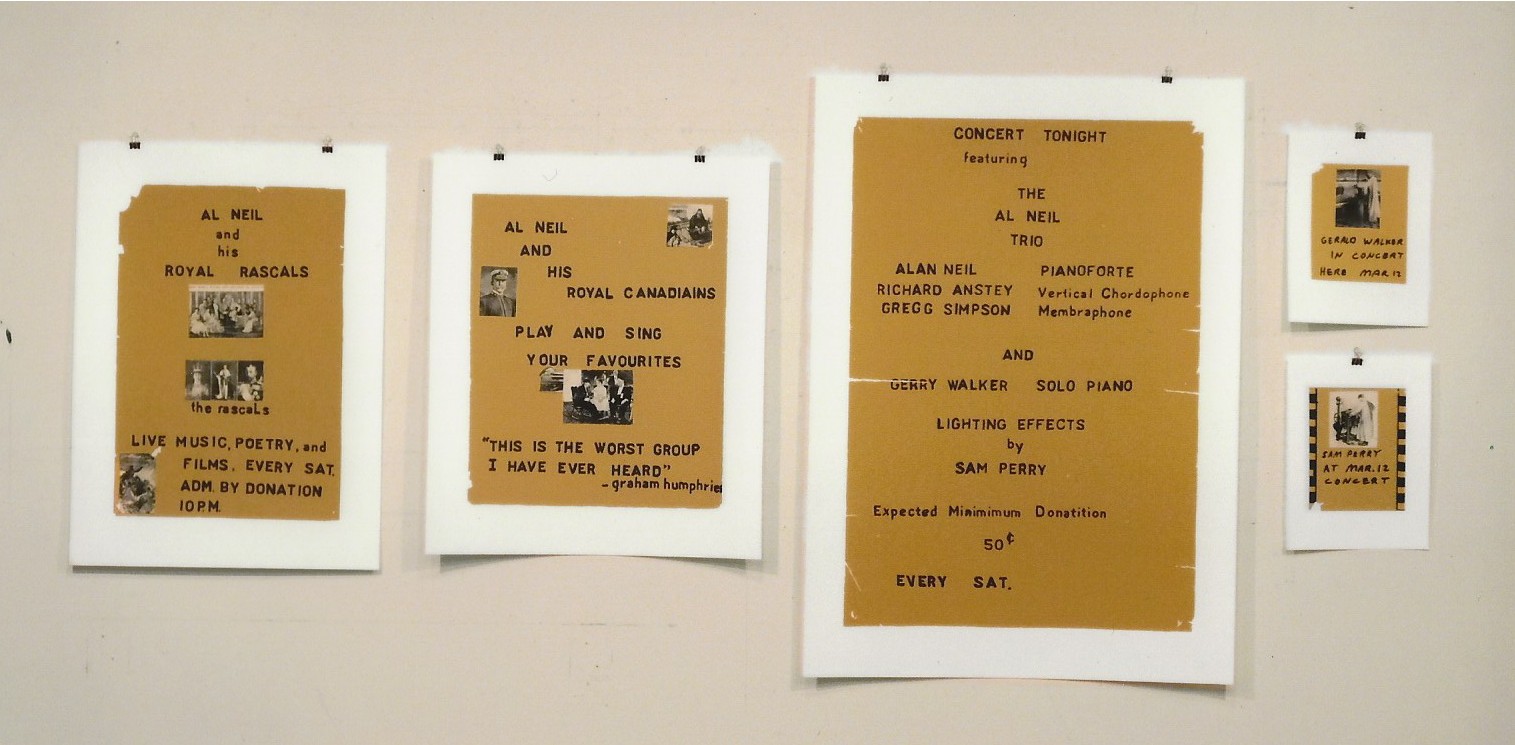 AL NEIL
and
his
ROYAL RASCALS
the rascals
LIVE MUSIC, POETRY, and
FILMS, EVERY SAT.
ADM. BY DONATION
10 P.M.
AL NEIL
AND
HIS
ROYAL CANADIAINS
PLAY AND SING
YOUR FAVOURITES
"THIS IS THE WORST GROUP
I HAVE EVER HEARD"
- graham humphries
CONCERT TONIGHT
featuring
THE
AL NEIL
TRIO
ALAN NEIL PIANOFORTE
RICHARD ANSTEY Vertical Chordophone
GREGG SIMPSON Membraphone
AND
GERRY WALKER SOLO PIANO
LIGHTING EFFECTS
by
SAM PERRY
Expected Minimimum Donatition
50¢
EVERY SAT.
GERALD WALKER
IN CONCERT
HERE MAR. 12
SAM PERRY
AT MAR. 12
CONCERT